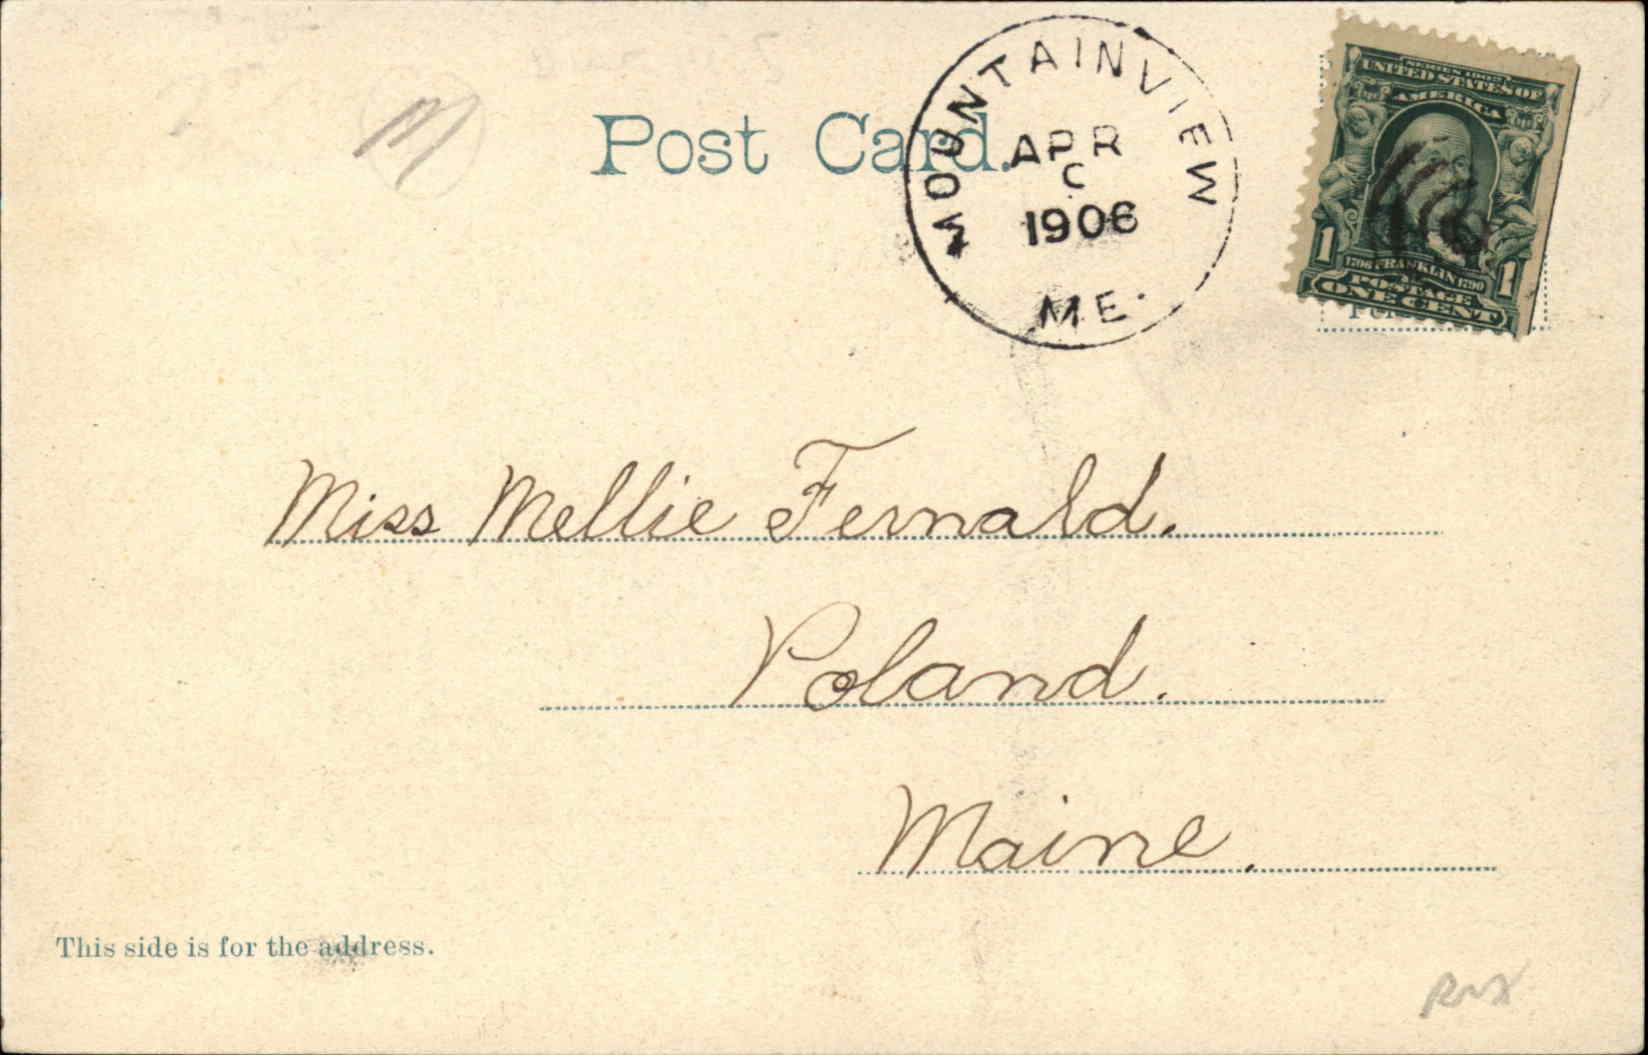 Post Card.
MOUNTAINVIEW
APR
C
1906
ME.
SERIES 1902
UNITED STATES OF
AMERICA
1 1706 FRANKLIN 1790 1
POSTAGE
ONE CENT
M
Miss Mellie Fernald.
Poland.
Maine.
This side is for the address.